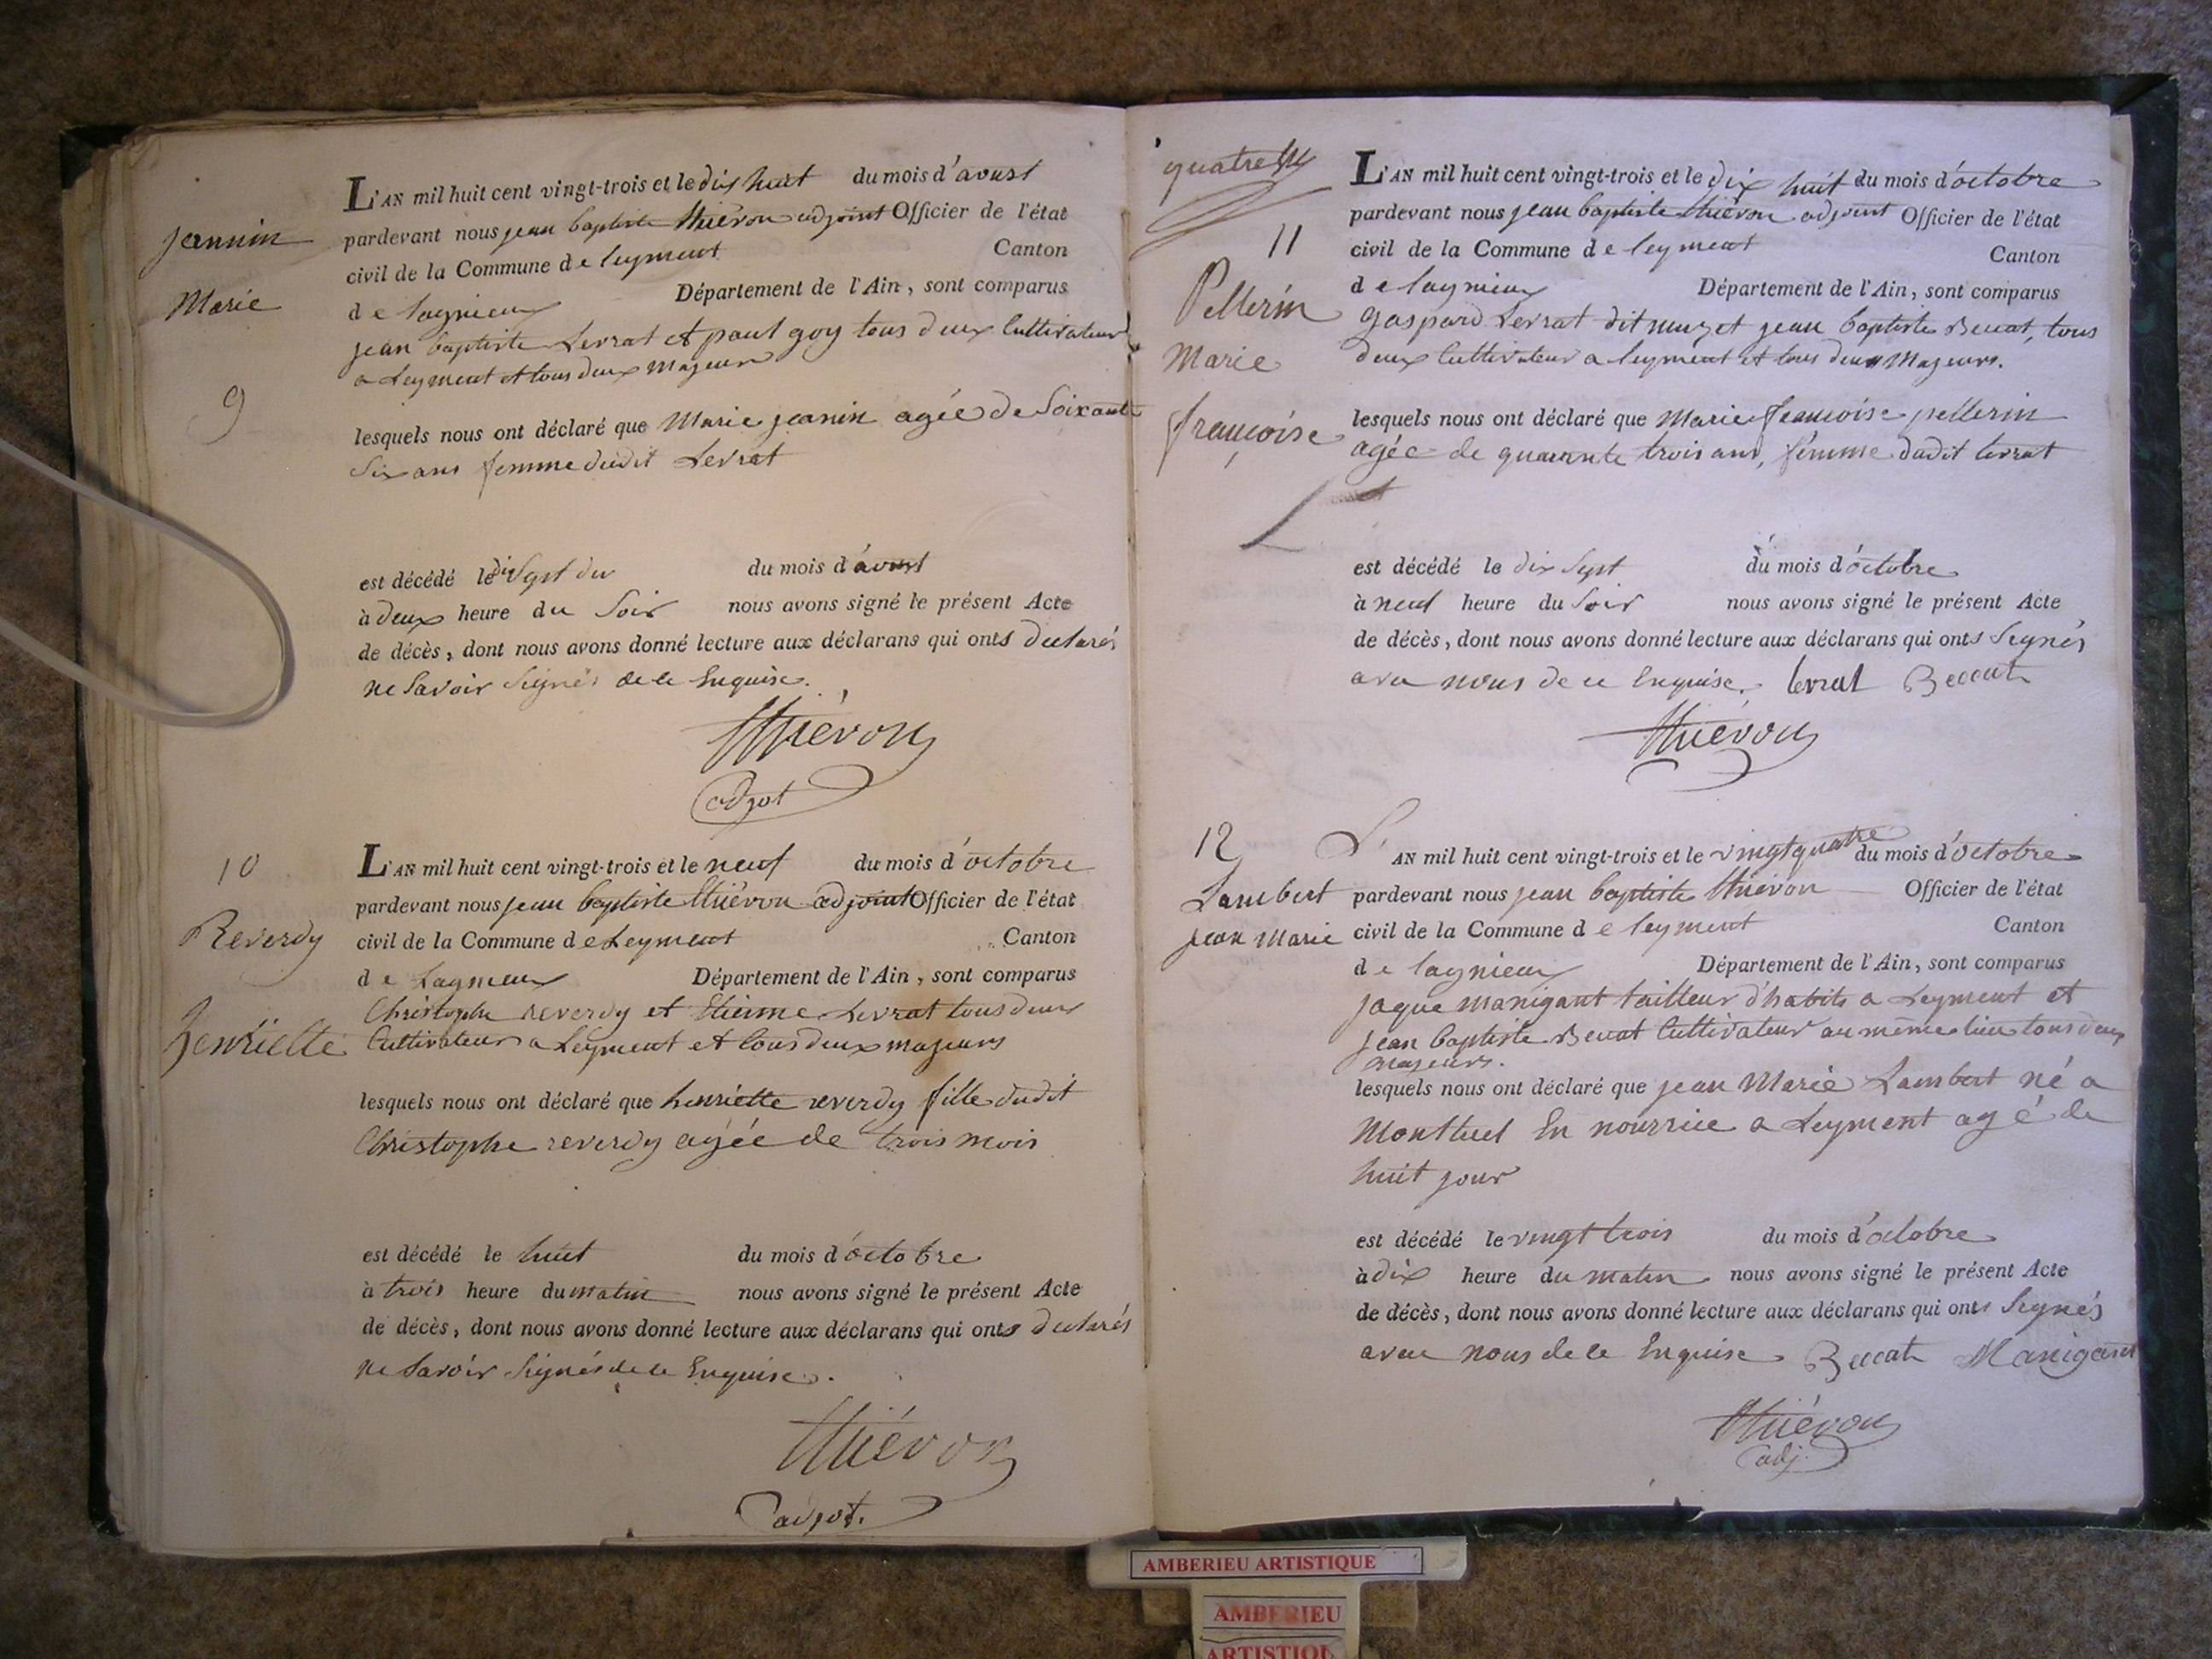 L'AN mil huit cent vingt-trois et le dix huit du mois d'avust
pardevant nous jean baptiste thiévon adjoint Officier de l'état
jannin
civil de la Commune de leyment Canton
Marie
de lagnieux Département de l'Ain, sont comparus
jean baptiste Levrat et paul goy tous deux Cultivateur
a Leyment et tous deux majeur
9
lesquels nous ont déclaré que Marie jeanin agée de Soixante
Six ans femme dudit Levrat
est décédé le dix Sept du du mois d'avust
à deux heure du Soir nous avons signé le présent Acte
de décès, dont nous avons donné lecture aux déclarans qui onts declarés
ne Savoir Signés de ce Enquise.
thiévon
adjot
10
L'AN mil huit cent vingt-trois et le neuf du mois d'octobre
pardevant nous jean baptiste thiévon adjoint Officier de l'état
Reverdy
civil de la Commune de Leyment Canton
de Lagnieux Département de l'Ain, sont comparus
Christophe reverdy et Etienne Levrat tous deux
henriette
Cultivateur a Leyment et tous deux majeurs
lesquels nous ont déclaré que henriette reverdy fille dudit
Christophe reverdy agée de trois mois
est décédé le huit du mois d'octobre
à trois heure du matin nous avons signé le présent Acte
de décès, dont nous avons donné lecture aux déclarans qui onts declarés
ne Savoir Signés de ce Enquise.
thiévon
adjot.
quatre
L'AN mil huit cent vingt-trois et le dix huit du mois d'octobre
pardevant nous jean baptiste thiévon adjoint Officier de l'état
11
civil de la Commune de leyment Canton
Pellerin
de lagnieux Département de l'Ain, sont comparus
gaspard Levrat dit muzet jean baptiste Beccat, tous
Marie
deux Cultivateur a leyment et tous deux Majeurs.
françoise
lesquels nous ont déclaré que Marie françoise pellerin
agée de quarante trois ans, femme dudit levrat
est décédé le dix Sept du mois d'octobre
à neuf heure du Soir nous avons signé le présent Acte
de décès, dont nous avons donné lecture aux déclarans qui onts Segnés
avec nous de ce Enquise. levrat Beccat
thiévon
12
L'AN mil huit cent vingt-trois et le vingt quatre du mois d'octobre
Lambert
pardevant nous jean baptiste thiévon Officier de l'état
jean Marie
civil de la Commune de leyment Canton
de lagnieux Département de l'Ain, sont comparus
jaque manigant tailleur d'habits a Leyment et
jean baptiste Beccat Cultivateur au même lieu tous deux
majeurs.
lesquels nous ont déclaré que jean Marie Lambert né a
Montluel En nourrice a Leyment agé de
huit jour
est décédé le vingt trois du mois d'octobre
à dix heure du matin nous avons signé le présent Acte
de décès, dont nous avons donné lecture aux déclarans qui onts Segnés
avec nous de ce Enquise. Beccat Manigant
thiévon
adj.
AMBERIEU ARTISTIQUE
AMBERIEU
ARTISTIQU